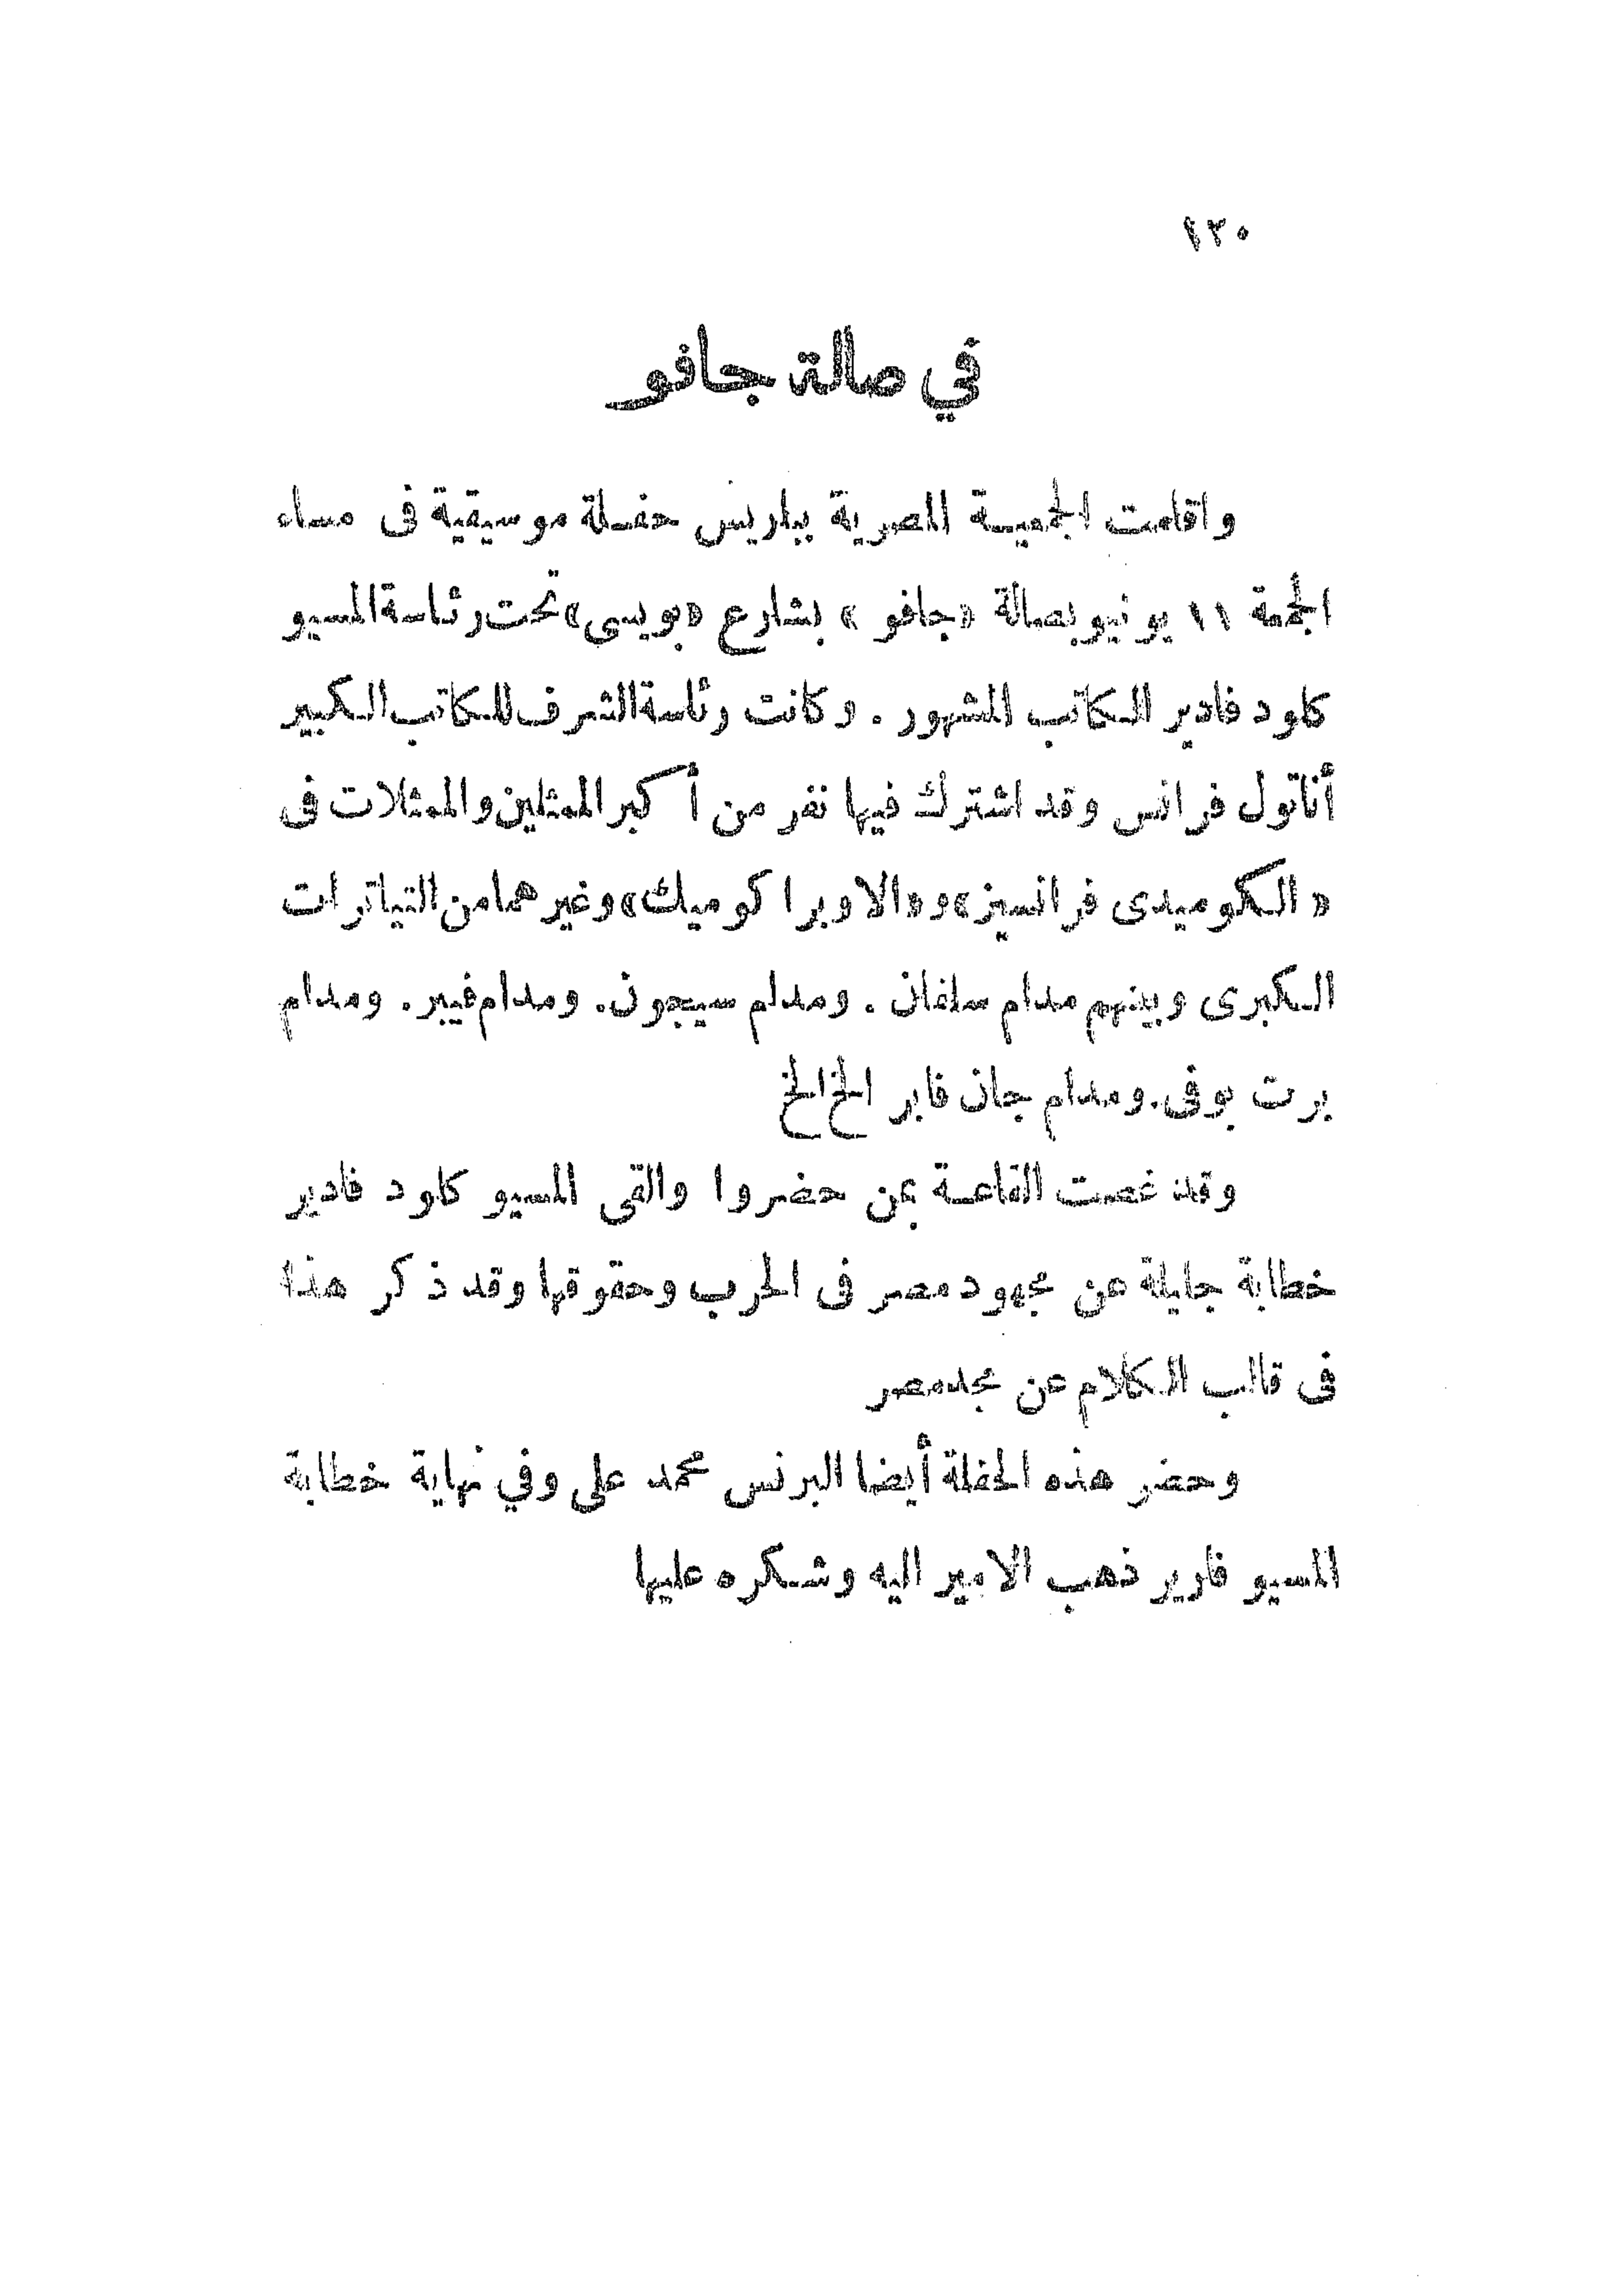 ١٣٠
في صالة جافو
واقامت الجمعية المصرية بباريس حفلة موسيقية فى مساء
الجمعة ١١ يونيو بصالة «جافو» بشارع «بويسى» تحت رئاسة المسيو
كلود فادير الكاتب المشهور . وكانت رئاسة الشرف للكاتب الكبير
أناتول فرانس وقد اشترك فيها نفر من أكبر الممثلين والممثلات فى
«الكوميدى فرانسيز» و«الاوبرا كوميك» وغيرهما من التياترات
الكبرى وبينهم مدام سلفان . ومدام سيجون. ومدام فيبر. ومدام
برت بوفى. ومدام جان فابر الخ الخ
وقد غصت القاعة بمن حضروا والقى المسيو كلود فادير
خطابة جليلة عن مجهود مصر فى الحرب وحقوقها وقد ذكر هذا
فى قالب الكلام عن مجد مصر
وحضر هذه الحفلة أيضا البرنس محمد على وفي نهاية خطابة
المسيو فارير ذهب الامير اليه وشكره عليها